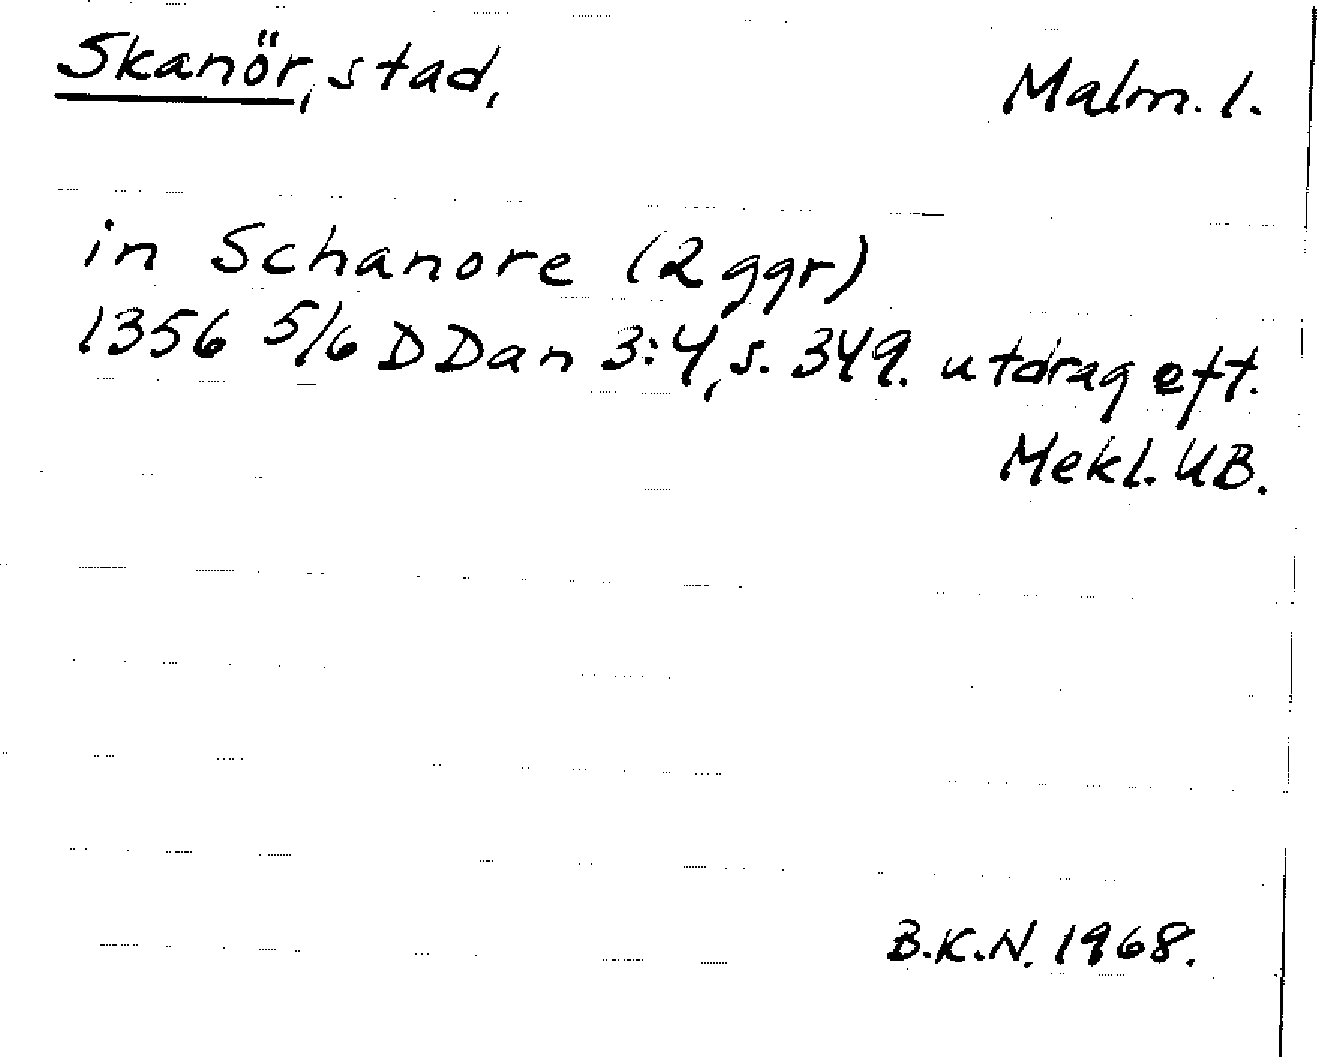 Skanör, stad, Malm. l.
in Schanore (2 ggr)
1356 5/6 DDan 3:4, s. 349. utdrag eft.
Mekl. UB.
B.K.N. 1968.